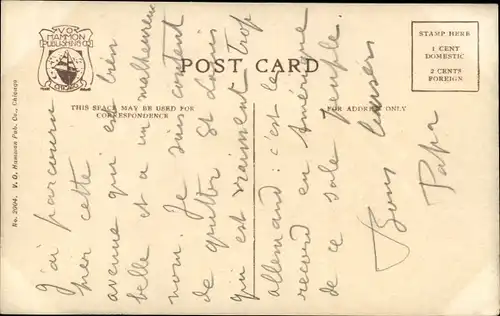 V.O.
HAMMON
PUBLISHING CO
CHICAGO
POST CARD
THIS SPACE MAY BE USED FOR
CORRESPONDENCE
FOR ADDRESS ONLY
STAMP HERE
1 CENT
DOMESTIC
2 CENTS
FOREIGN
No. 2004. V. O. Hammon Pub. Co., Chicago
J'ai parcouru
hier cette
avenue qui est bien
belle et a un malheureux
nom. Je suis content
de quitter St Louis
qui est vraiment trop
allemand : c'est le
record en Amérique
de ce sale peuple.
Bons baisers
Papa